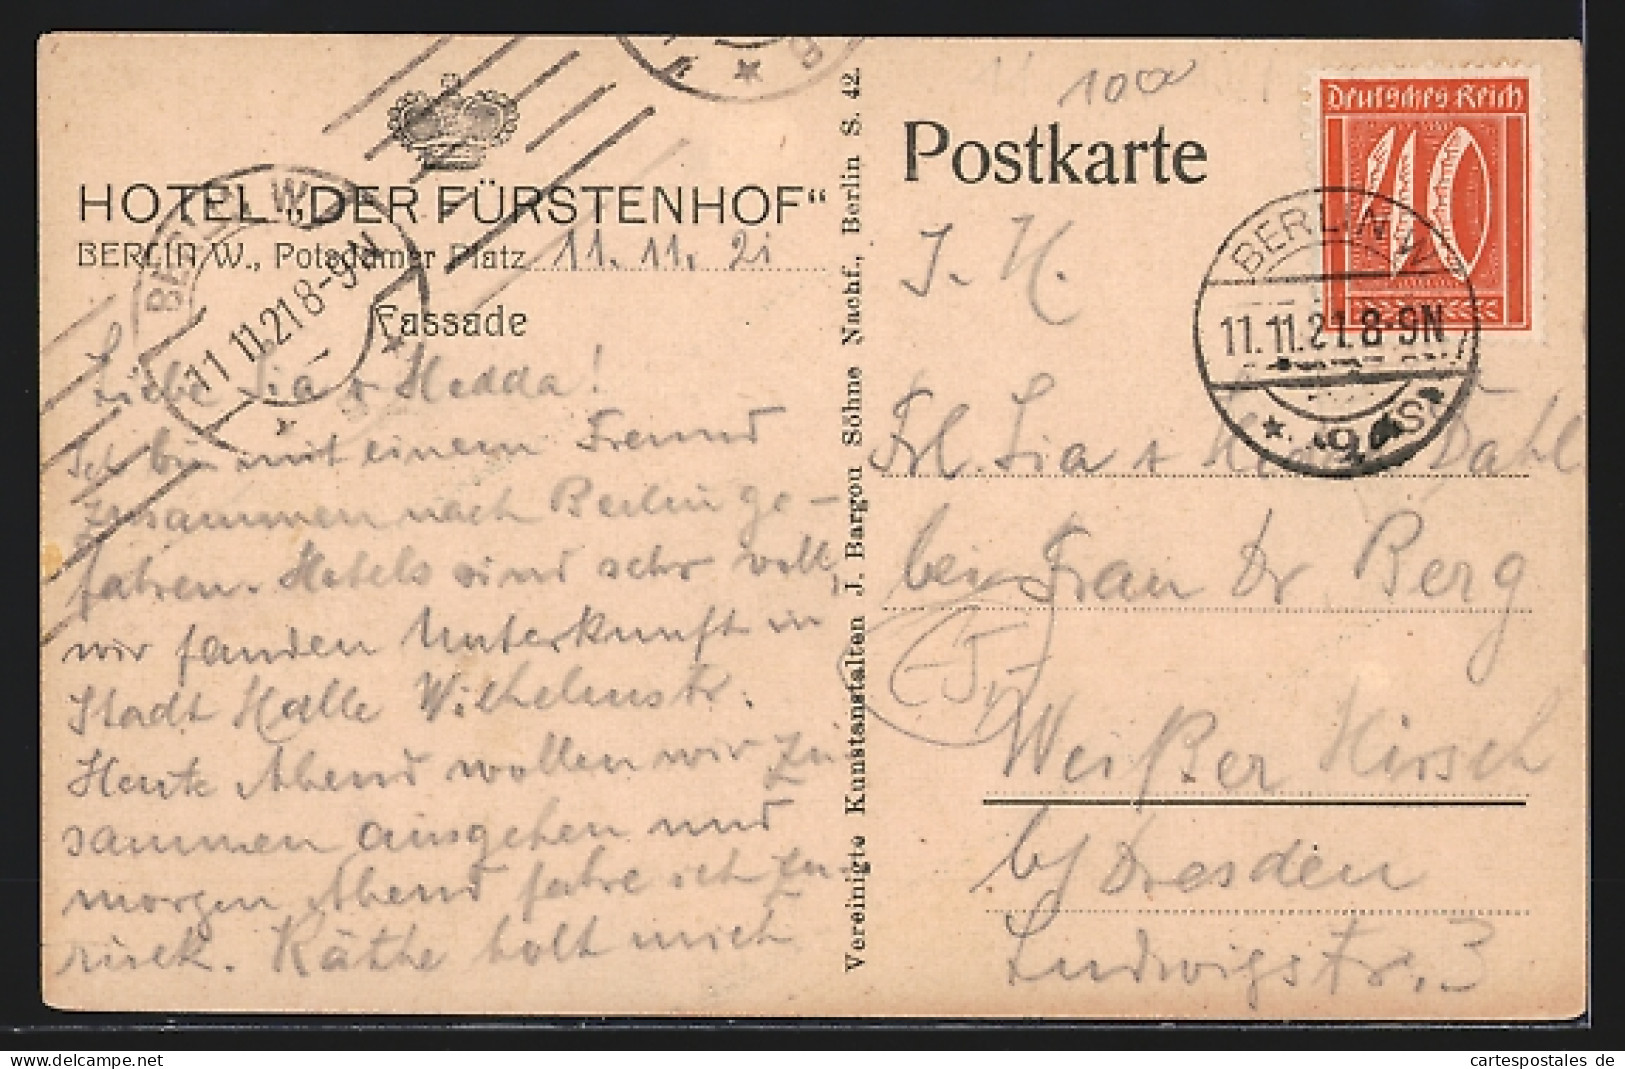 HOTEL „DER FÜRSTENHOF“
BERLIN W., Potsdamer Platz 11. 11. 21
Fassade
Liebe Lia + Hedda!
Ich bin mit einem Freund
zusammen nach Berlin ge-
fahren. Hotels sind sehr voll,
wir fanden Unterkunft in
Stadt Halle Wilhelmstr.
Heute Abend wollen wir zu
sammen ausgehen und
morgen Abend fahre ich zu-
rück. Käthe holt mich
BERLIN W
11 11.21 8-9 N
Vereinigte Kunstanstalten J. Bargou Söhne Nachf., Berlin S. 42.
Postkarte
Deutsches Reich
40
BERLIN W
11.11.21.8-9N
* 9
I. H.
Frl. Lia + Dahl
bei Frau Dr Berg
Weißer Hirsch
b/ Dresden
Ludwigstr. 3
www.cartespostales.de
cartespostales de